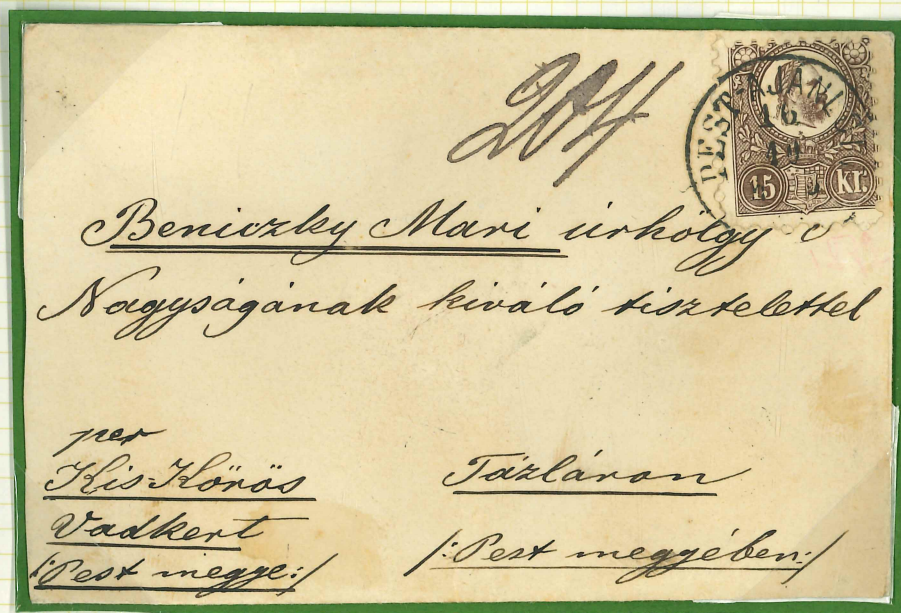 PEST-AJÁNL
16
10
15 Kr.
Beniczky Mari úrhölgy Ő
Nagyságának kiváló tisztelettel
per
Kis-Kőrös
Vadkert
/: Pest megye :/
Tázláron
/: Pest megyében :/